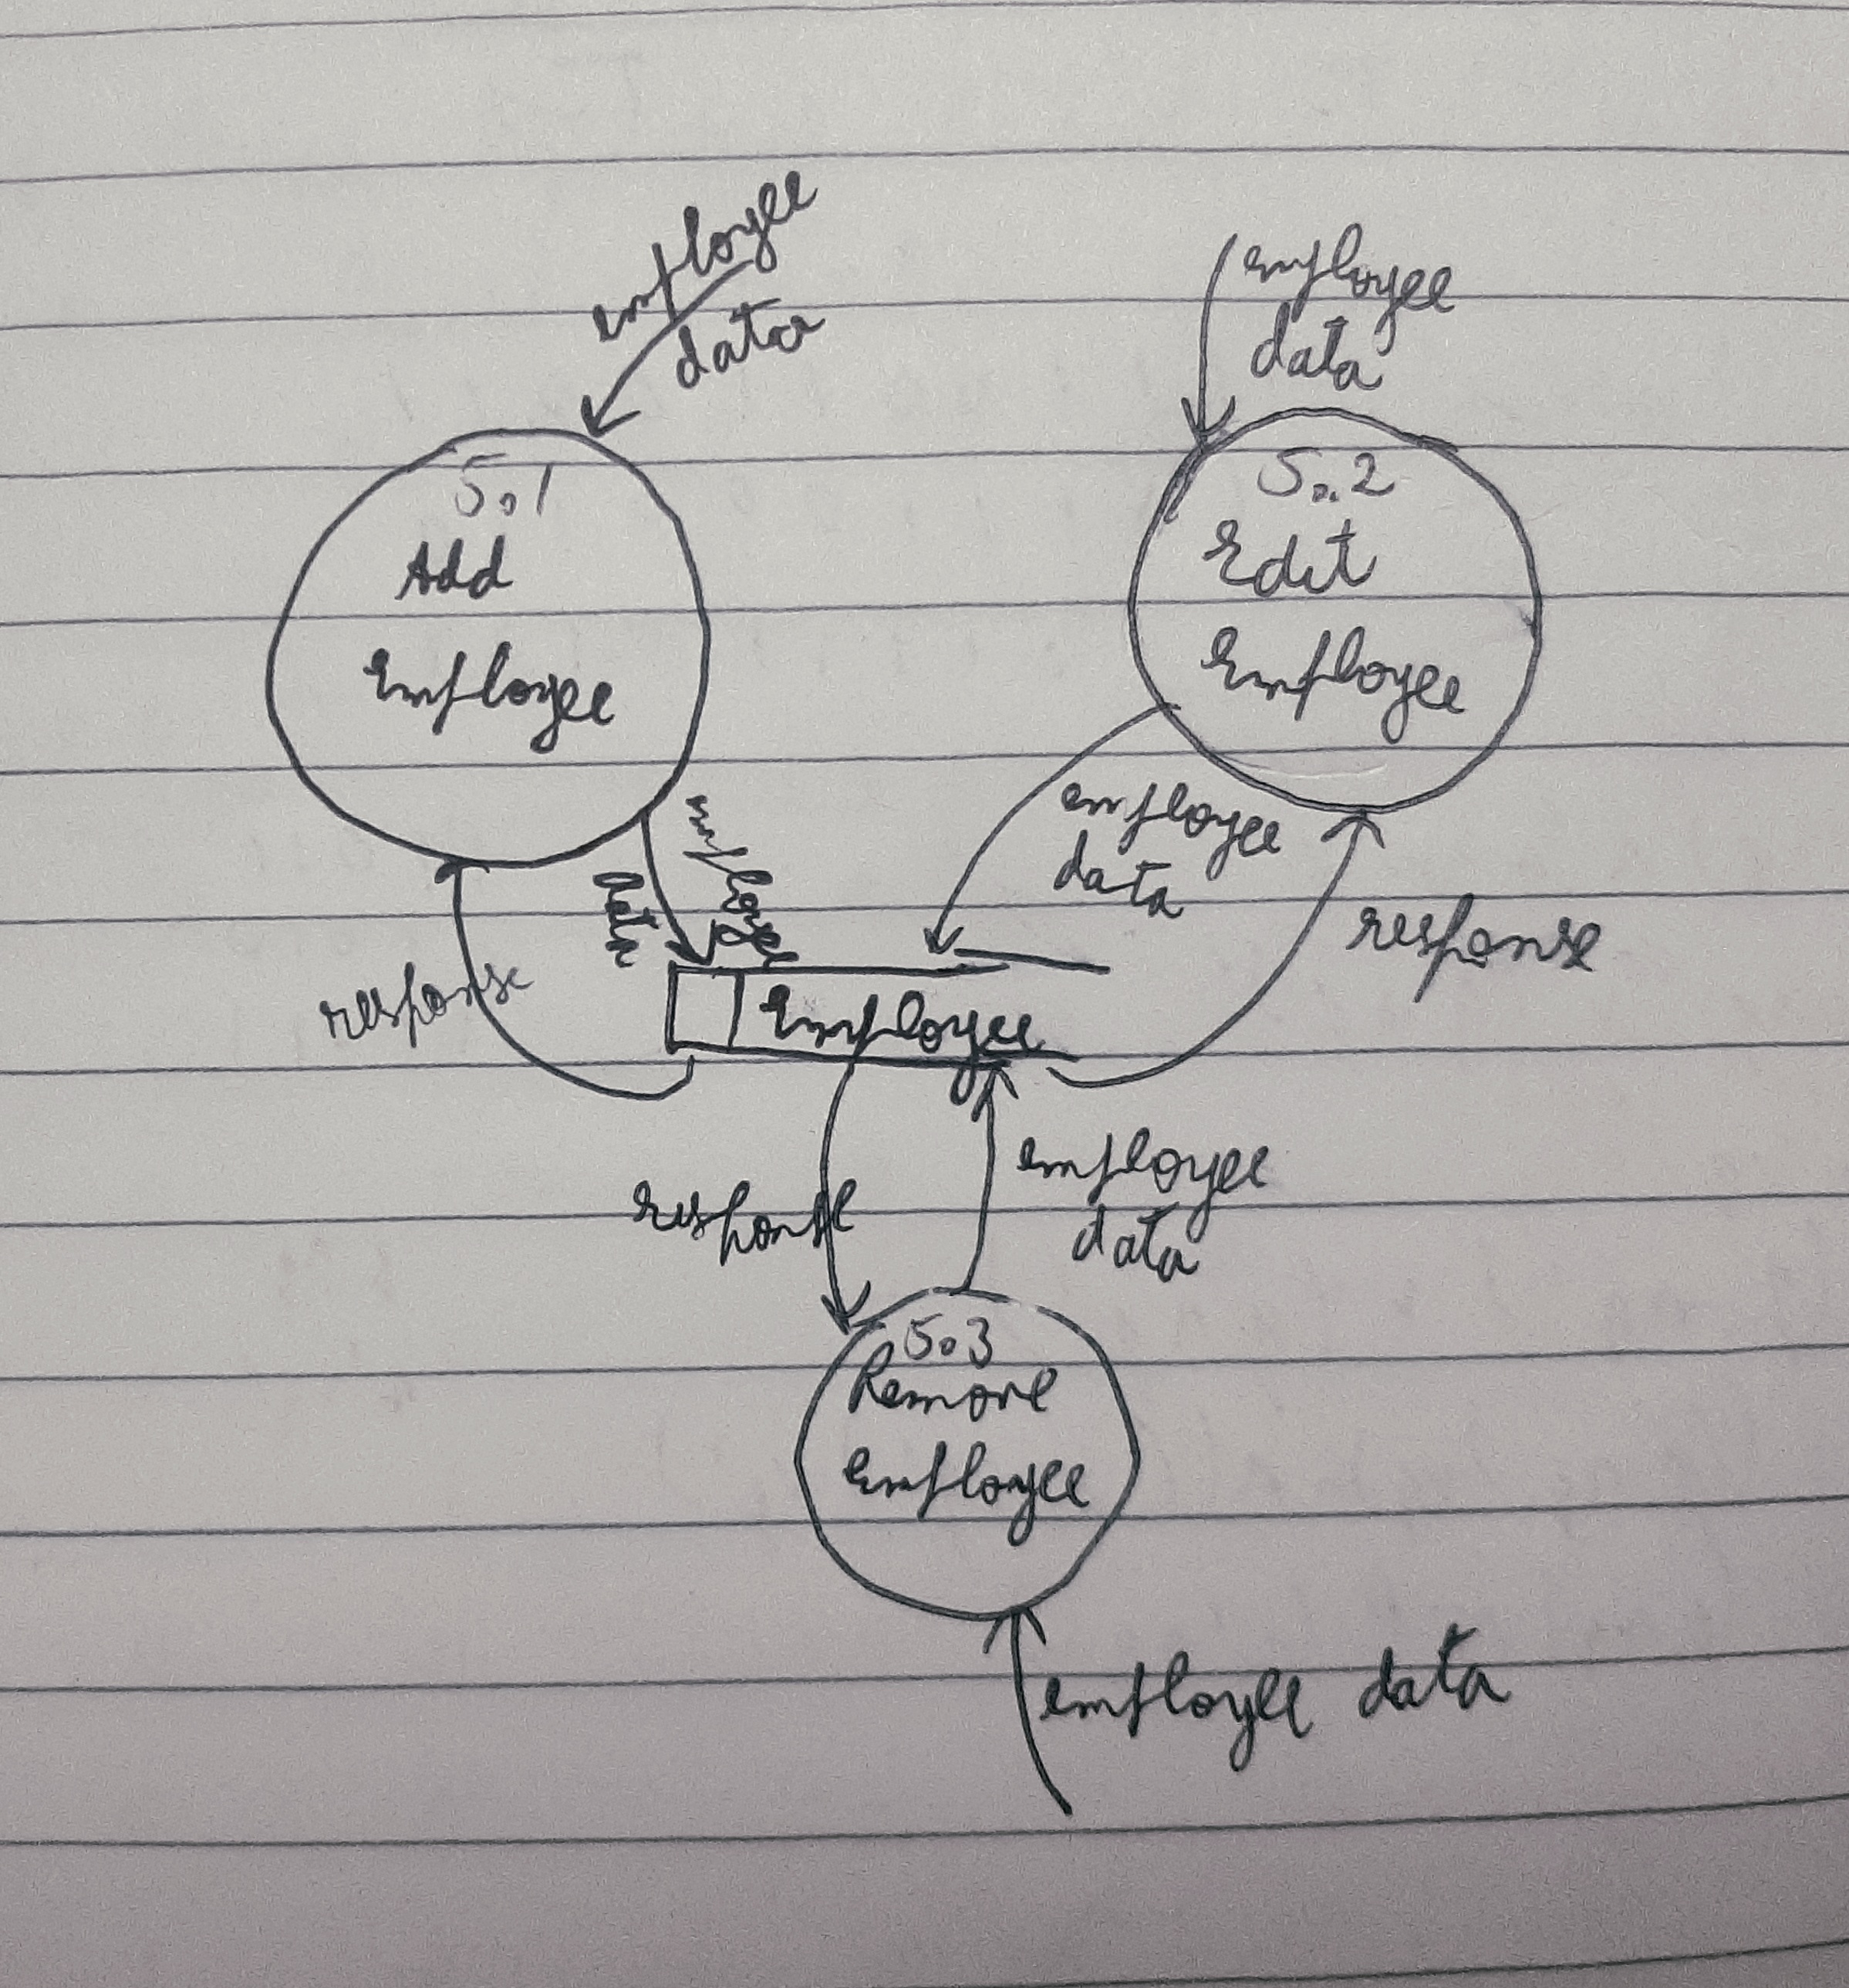 employee
data
employee
data
5.1
Add
Employee
5.2
Edit
Employee
employee
data
employee
data
response
response
Employee
response
employee
data
5.3
Remove
Employee
employee data